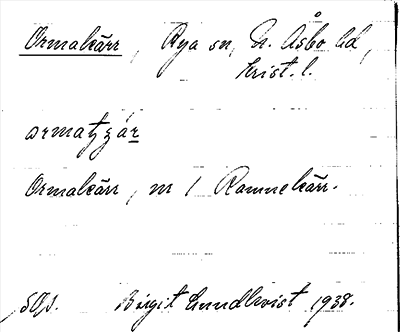 Ormakärr, Rya sn, N. Åsbo hd,
Krist. l.
Ormakärr, m / Ramnekärr.
SOJ. Birgit Lundkvist 1938.